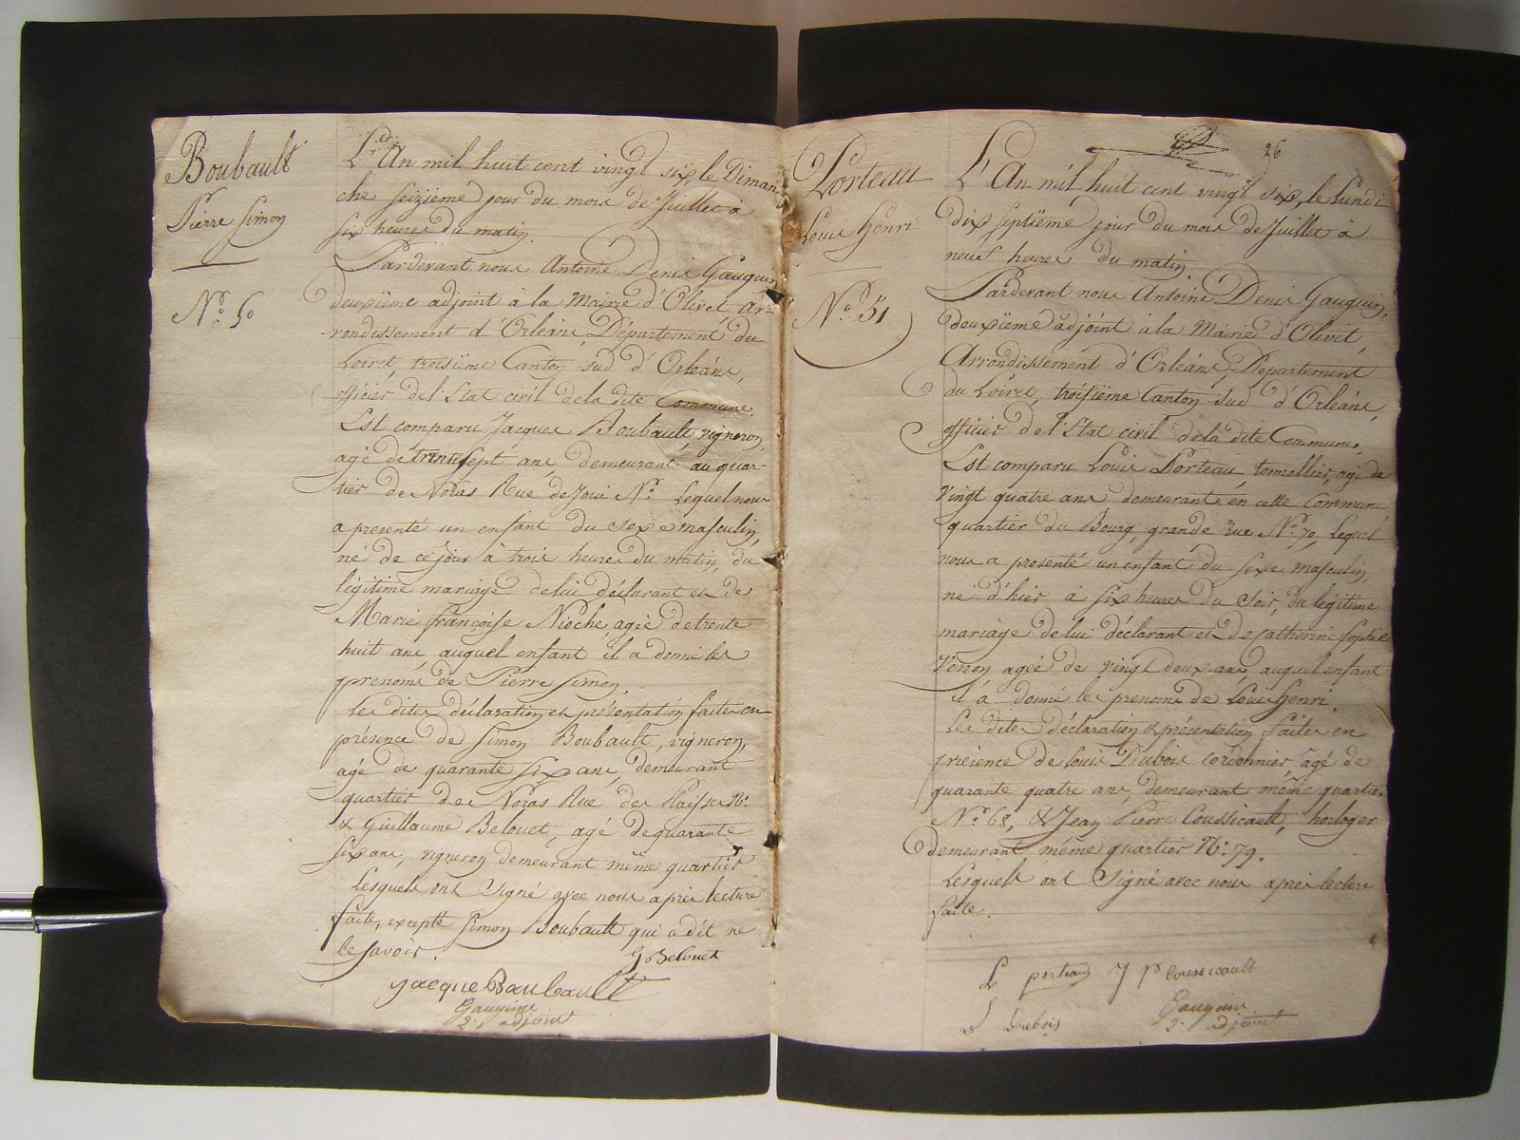 Boubault
Pierre Simon
N.º 50
L'An mil huit cent vingt six, le Diman
che seizieme jour du mois de Juillet à
six heures du matin.
Pardevant nous Antoine Denis Gauguin,
deuxiieme adjoint à la Mairie d'Olivet ar-
rondissement d'Orléans, Département du
Loiret, troisieme Canton sud d'Orléans,
officier de l'Etat civil de la dite Commune.
Est comparu Jacques Boubault, vigneron,
agé de trente sept ans, demeurant au quar-
tier de Noras Rue de Joui N.º lequel nous
a presenté un enfant du sexe masculin,
né de ce jour a trois heures du matin, du
légitime mariage de lui déclarant et de
Marie françoise Nioche agée de trente
huit ans, auquel enfant il a donné les
prenoms de Pierre Simon.
les dites déclaration et présentation faites en
présence de Simon Boubault, vigneron,
agé de quarante six ans, demeurant
quartier de Noras Rue des N.º
& Guillaume Belouet, agé de quarante
six ans, vigneron demeurant même quartier
lesquels ont Signé avec nous apres lecture
faite, excepté Simon Boubault qui a dit ne
le savoir.
G Belouet
jacque Boubault
Gauguin
2.e adjoint
26
Porteau
Louis Henri
N.º 51
L'An mil huit cent vingt six, le Lundi
dix septiëme jour du mois de Juillet à
neuf heures du matin.
Pardevant nous Antoine Denis Gauguin,
deuxiieme adjoint à la Mairie d'Olivet,
Arrondissement d'Orléans, Département
du Loiret, troisiieme Canton sud d'Orléans,
officier de l'Etat civil de la dite Commune.
Est comparu Louis Porteau, tonnellier, agé de
vingt quatre ans demeurant en cette Commune
quartier du Bourg, grande rue N.º 70, lequel
nous a presenté un enfant du sexe masculin,
né d'hier à six heures du soir, du légitime
mariage de lui déclarant et de Catherine Sophie
Venon agée de vingt deux ans, auquel enfant
il a donné les prenoms de Louis Henri.
les dites déclaration & présentation faites en
présence de Louis Dubois cordonnier, agé de
quarante quatre ans, demeurant même quartier
N.º 68, & Jean Pierre Coussicault, horloger
demeurant même quartier N.º 79.
Lesquels ont Signé avec nous apres lecture
faite.
L porteau J P Coussicault
L Dubois
Gauguin
2.e adjoint